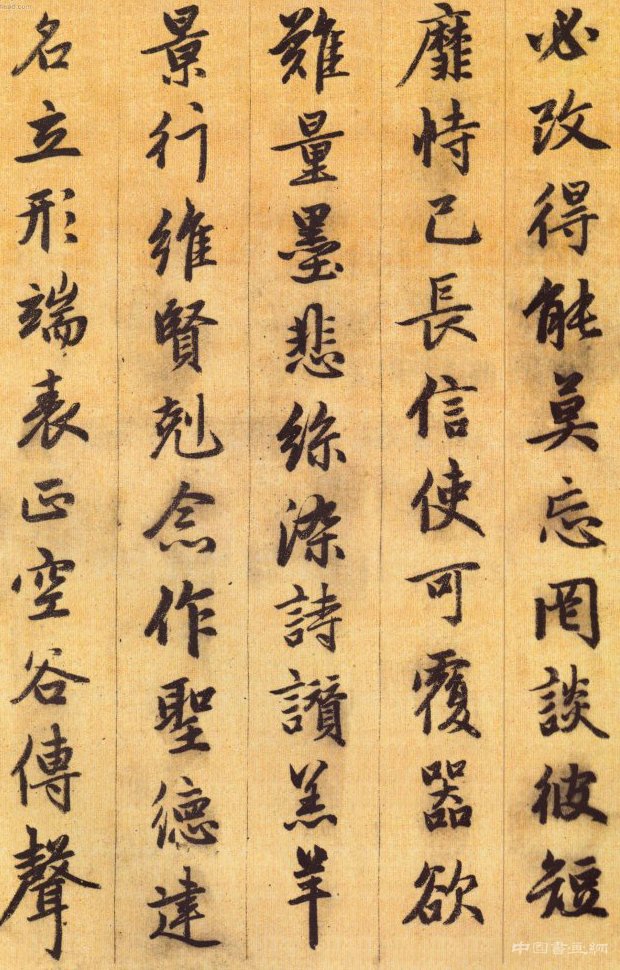 必改得能莫忘罔談彼短
靡恃己長信使可覆器欲
難量墨悲絲染詩讚羔羊
景行維賢剋念作聖德建
名立形端表正空谷傳聲
中国書画網
head.com